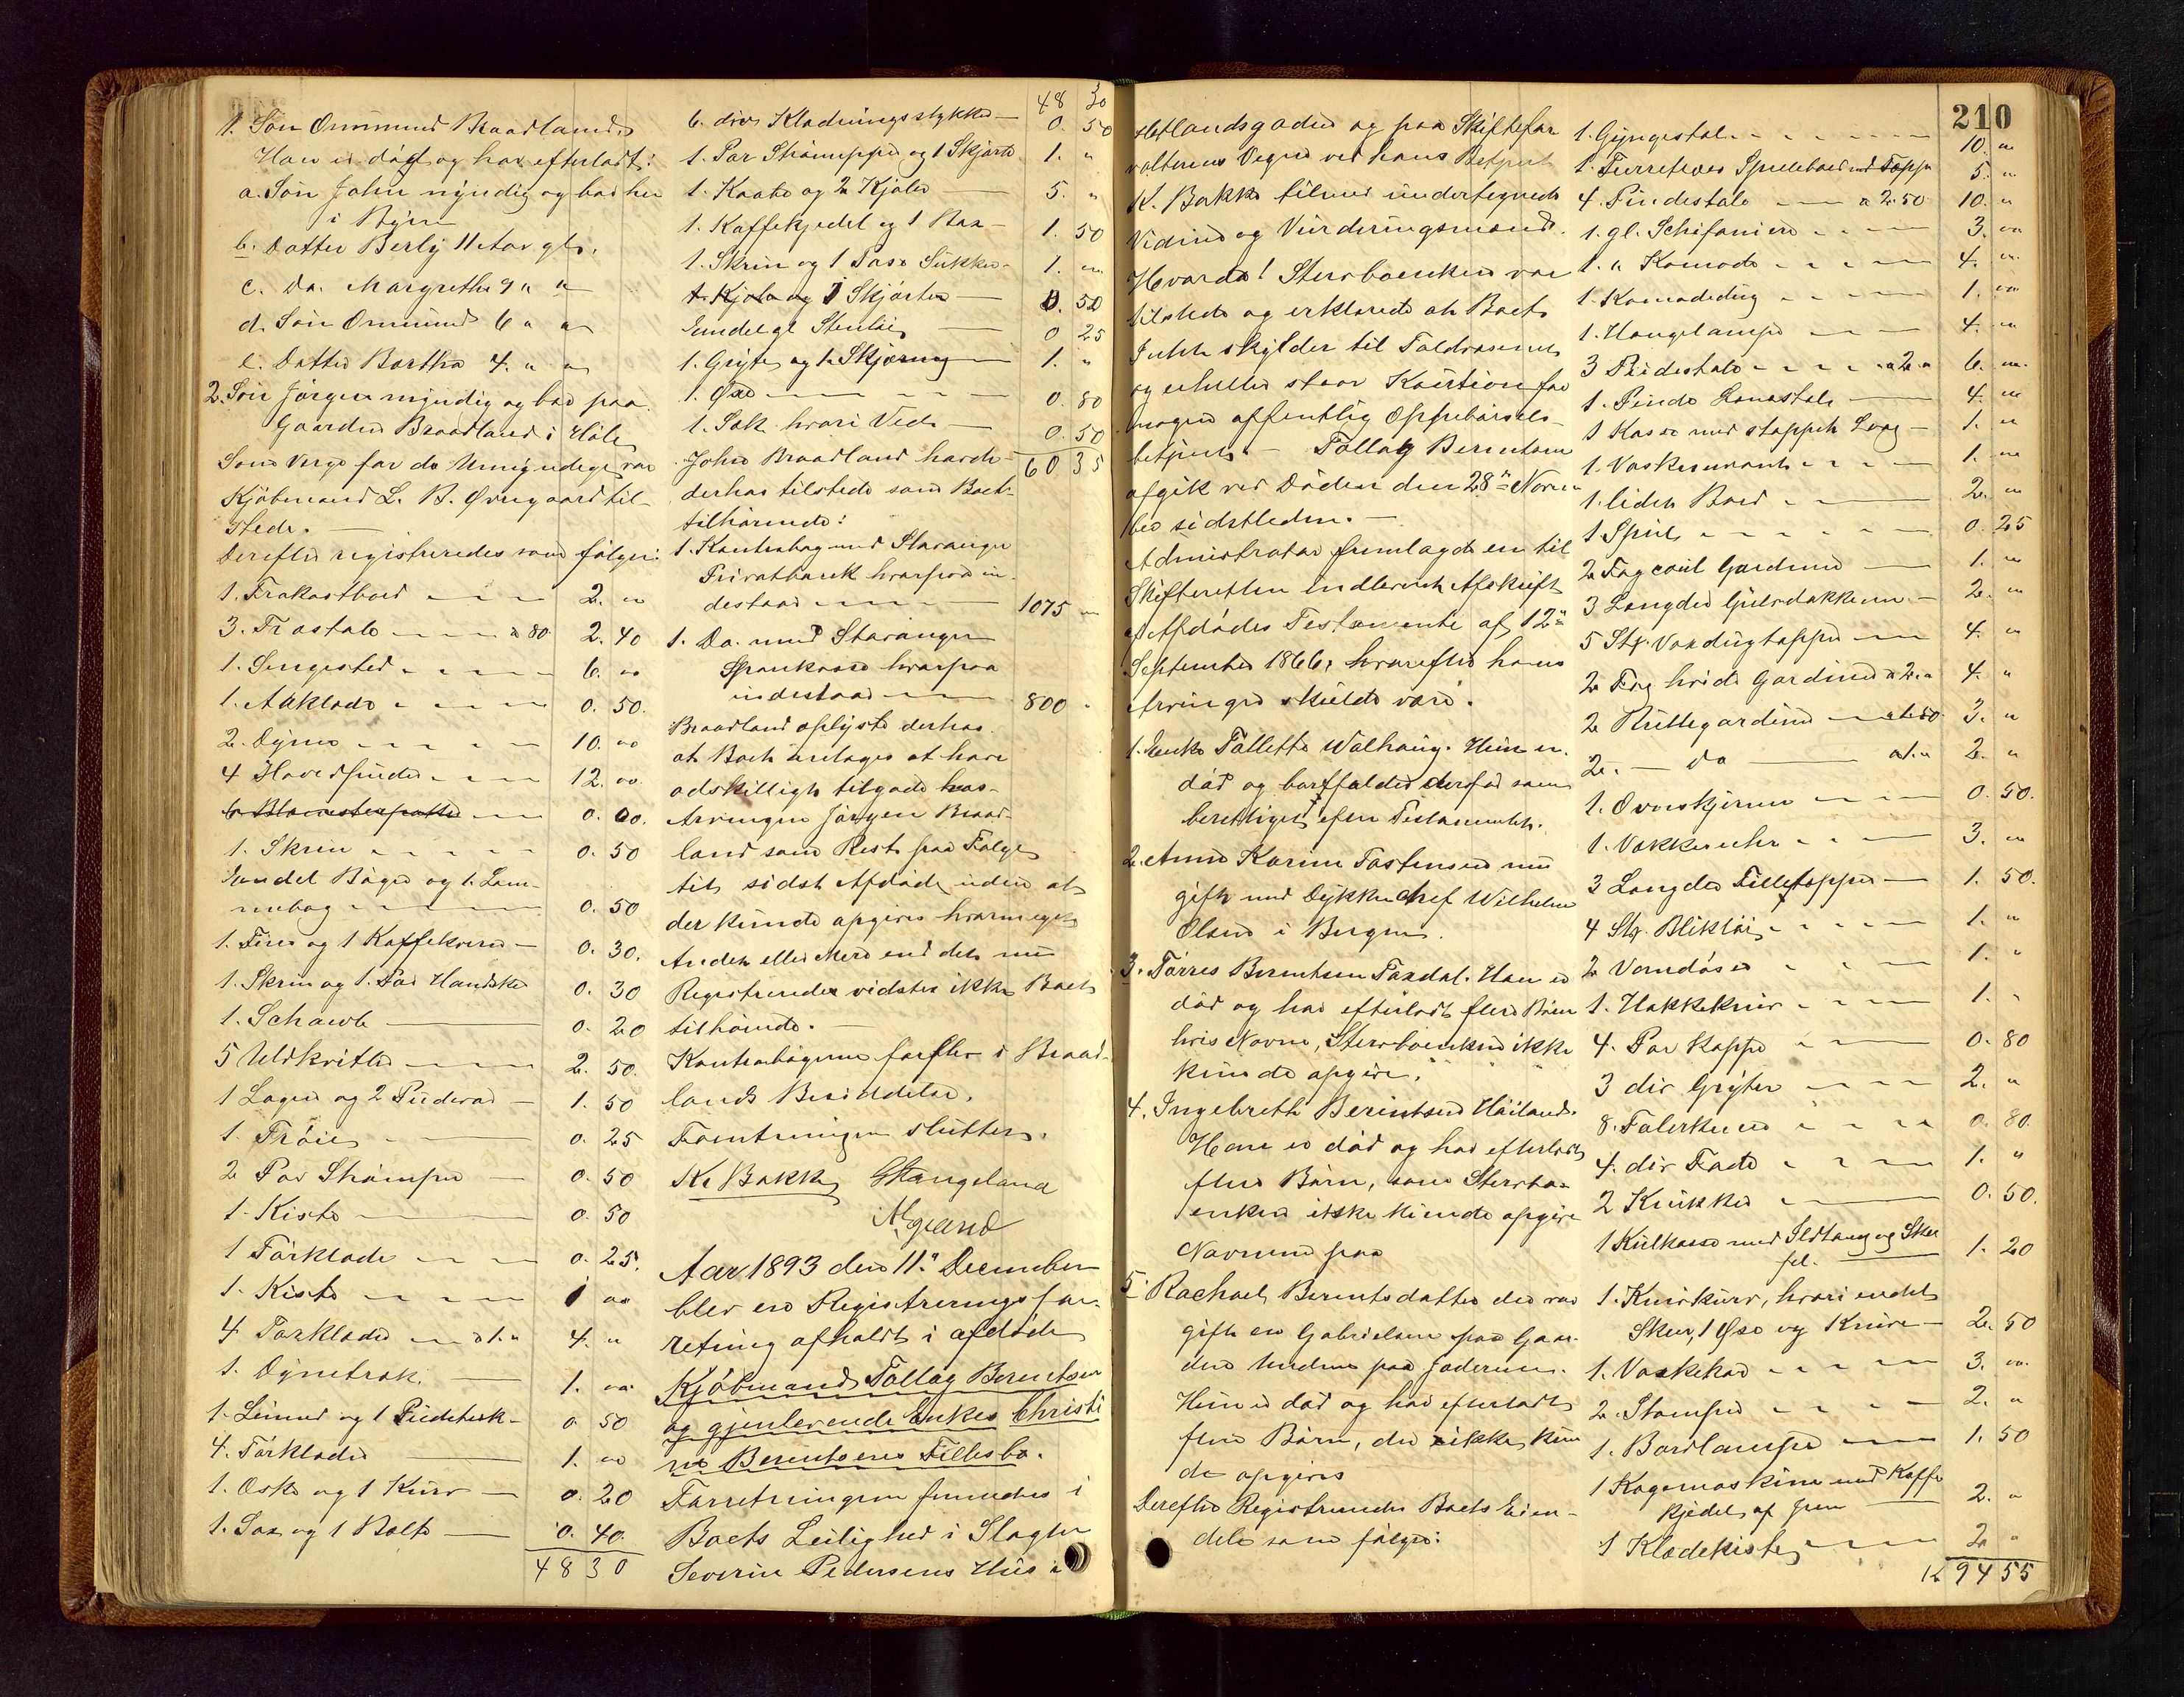 1. Søn Ommund Braadland
Han er død og har efterladt:
a. Søn John myndig og bor her
i Byen
b. Datter Berly 11 Aar gl.
c. Do. Margrethe 9 " "
d. Søn Ommund 6 " "
e. Datter Bertha 4. " "
2. Søn Jørgen myndig og bor paa
Gaarden Braadland i Høle
Som Verge for de Umyndige var
Kjøbmand L. B. Øvregaard til-
stede.
Derefter registreredes som følger:
1. Frokostbord 2. "
3. Træstole a 80 2. 40
1. Sengested 6. "
1. Aaklæde 0. 50.
2. Dyner 10. "
4 Hovedpuder 12. "
6 Blomsterpotter 0. 00.
1. Skrin 0. 50
Endel Bøger og 1. Lom-
mebog 0. 50
1. Fires og 1 Kaffekværn 0. 30.
1. Skrin og 1. Par Handsker 0. 30
1. Schawl 0. 20
5 Uldkvitler 2. 50.
1 Lagen og 2 Pudevar 1. 50
1. Trøie 0. 25
2 Par Strømper 0. 50
1. Kiste 0. 50
1 Forklæde 0. 25.
1. Kiste 1 "
4 Forklæder a 1. " 4. "
1. Dynetræk. 1. "
1. Linned og 1 Pudetræk 0. 50
4. Forklæder 1. "
1. Æske og 1 Kurv 0. 20
1. Sax og 1 Balte 0. 40.
48 30
48 30
6. div Klædningsstykker 0. 50
1. Par Strømpper og 1 Skjørte 1. "
1. Kaabe og 2 Kjoler 5. "
1. Kaffekjedel og 1 Bax 1. 50
1. Skrin og 1 Dase Sukker 1. "
1. Kjole og 1 Skjørter 0. 50
Endel gl Stentøi 0 25
1. Gryte og 1. Skjæring 1. "
1. Øxe 0. 80
1. Sæk hvori Ved 0. 50
60 35
John Braadland havde
derhos tilstede som Boet
tilhørende:
1. Kontrabog med Stavanger
Privatbank hvorpaa in-
destaar 1075 "
1. Do. med Stavanger
Sparekasse hvorpaa
indestaar 800 "
Braadland oplyste derhos
at Boet antages at have
adskilligt tilgode hos
Arvingen Jørgen Braad-
land som Rest paa Følge
til sidst Afdøde uden at
der kunde opgives hvormeget
Andet eller Mere end det nu
Registrerede vidstes ikke Boet
tilhørende.
Kontrabøgerne forblev i Braad-
lands Besiddelse.
Forretningen sluttet.
K. Bakke GStangeland
Aar 1893 den 11te December
blev en Registreringsfor-
retning afholdt i afdøde
Kjøbmand Tollag Berentsen
og gjenlevende Enkes Christi
ne Berentsens Fællesbo.
Forretningen fremmedes i
Boets Leilighed i Slagter
Severin Pedersens Hus i
Hetlandsgaden og paa Skiftefor
valterens Vegne ved hans Betjent
K. Bakke tilmed undertegnede
Vidner og Vurderingsmænd.
Hvorda! Sterboenken var
tilstede og erklærede at Boet
Intet skylder til Toldvæsenet
og eiheller staar Kaution for
nogen offentlig Oppebørsels-
betjent. Tollag Berentsen
afgik ved Døden den 28de Novem
ber sidstleden.
Administrator fremlagde en til
Skifteretten indleveret Afskrift
af Afdødes Testamente af 12te
September 1866, hvorefter hans
Arvinger skulde være:
1. Enke Tallette Walhaug. Hun er
død og bortfalder derfor som
berettiget efter Testamentet.
2. Anne Karine Tostensen nu
gift med Dykkerchef Wilhelm
Olsen i Bergen.
3. Tørres Berentsen Taxdal. Han er
død og har efterladt flere Børn
hvis Navne, Sterboenken ikke
kunde opgive.
4. Ingebreth Berentsen Høiland.
Han er død og har efterladt
flere Børn, som Sterbo-
enken ikke kunde opgive
Navnene paa
5. Rachael Berentsdatter der var
gift en Gabrielsen paa Gaar-
den Undem paa Jæderen.
Hun er død og har efterladt
flere Børn, der ikke kun
de opgives
Derefter Registreredes Boets Eien-
dele som følger:
210
1. Gyngestol 10. "
1. Furretræes Spillebord med Tæppe 5. "
4. Pindestole a 2.50 10. "
1. gl. Schifoniere 3. "
1. " Komode 4. "
1. Komodedug 1. "
1. Hængelampe 4. "
3 Pidestole a 2. " 6. "
1. Pinde Lænestole 4. "
1 Kasse med stoppet Laag 1. "
1. Vaskeservant 1. "
1. liden Bord 2. "
1 Speil 0. 25
2 Fag coul Gardiner 1. "
3 Længder Gulvdækken 2. "
5 Stk. Voxdugtæpper 4. "
2 Fag hvide Gardiner a 2. " 4. "
2 Rullegardiner a 1.50 3. "
2. do a 1. " 2. "
1. Ovnskjerm 0. 50.
1. Vækkeruhr 3. "
3 Længder Filletæpper 1. 50.
4 Stk. Bliktøi 1. "
2 Vandøser 1. "
1. Hakkekniv 1. "
4. Par Kopper 0. 80
3 div Gryter 2. "
8. Talerkener 0. 80.
4. div Fade 1. "
2 Krukker 0. 50.
1 Kulkasse med Ildtang og Skuf
fel. 1. 20
1. Knivkurv, hvori endel
Skeer, 1 Øse og Knive 2. 50
1. Vaskekar 3. "
2. Stamper 2. "
1. Bordlampe 1. 50
1 Kogemaskine med Kaffe
kjedel af Jern 2. "
1 Klædekiste 2 "
94 55